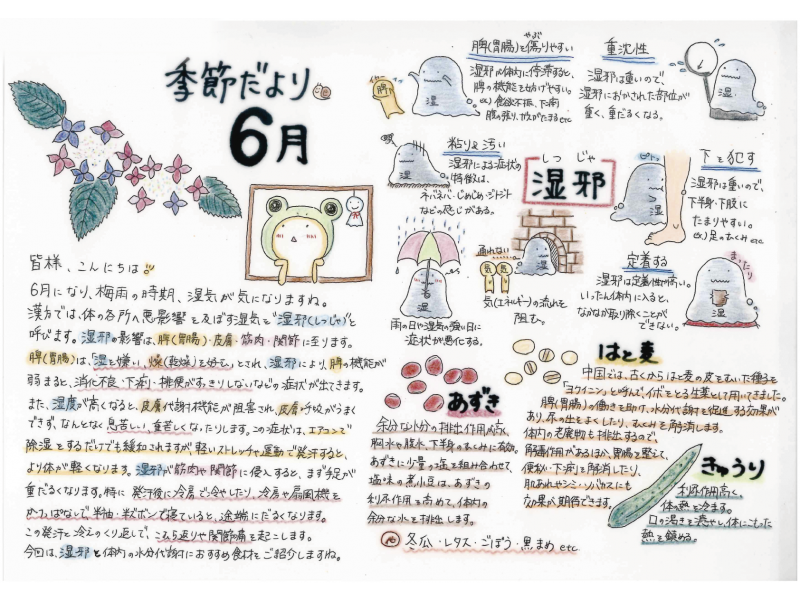 季節だより
6月
皆様、こんにちは
6月になり、梅雨の時期、湿気が気になりますね。
漢方では、体の各所へ悪影響を及ぼす湿気を"湿邪(しつじゃ)"と
呼びます。湿邪の影響は、脾(胃腸)・皮膚・筋肉・関節に至ります。
脾(胃腸)は、「湿を嫌い、燥(乾燥)を好む」とされ、湿邪により、脾の機能が
弱まると、消化不良・下痢・排便がすっきりしないなどの症状が出てきます。
また、湿度が高くなると、皮膚代謝機能が阻害され、皮膚呼吸がうまく
できず、なんとなく息苦しい、重苦しくなったりします。この症状は、エアコンで
除湿をするだけでも緩和されますが、軽いストレッチや運動で発汗すると、
より体が軽くなります。湿邪が筋肉や関節に侵入すると、まず手足が
重だるくなります。特に発汗後に冷房で冷やしたり、冷房や扇風機を
つけっぱなしで半袖・半ズボンで寝ていると、途端にだるくなります。
この発汗と冷えのくり返しで、こむら返りや関節痛を起こします。
今回は、湿邪と体内の水分代謝におすすめ食材をご紹介しますね。
脾(胃腸)を傷りやすい
やぶ
湿邪が体内に停滞すると、
脾の機能を妨げやすい。
ex) 食欲不振、下痢
腹の張り、むかつき etc
脾
湿
重沈性
湿邪は重いので、
湿邪におかされた部位が
重く、重だるくなる。
湿
粘り&汚い
湿邪による症状の
特徴は、
ネバネバ・じめじめ・ジトジト
などの感じがある。
湿
しつ じゃ
湿邪
ピトッ
湿
下を犯す
湿邪は重いので、
下半身・下肢に
たまりやすい。
ex) 足のむくみ etc
湿
雨の日や湿気の強い日に
症状が悪化する。
通れない
気 気
湿
気(エネルギー)の流れを
阻む。
定着する
湿邪は定着性が高い。
いったん体内に入ると、
なかなか取り除くことが
できない。
まったり
湿
あずき
余分な水分の排出作用が高く、
胸水や腹水、下半身のむくみに有効。
あずきに少量の塩を組み合わせて、
塩味の煮小豆は、あずきの
利水作用を高めて、体内の
余分な水を排出します。
はと麦
中国では、古くからはと麦の皮をむいた種子を
「ヨクイニン」と呼んで、イボをとる生薬として用いてきました。
脾(胃腸)の働きを助け、水分代謝を促進する効果が
あり、尿の出をよくしたり、むくみを解消します。
体内の老廃物も排出するので、
解毒作用があるほか、胃腸を整えて、
便秘・下痢を解消したり、
肌あれやシミ・ソバカスにも
効果が期待できます。
きゅうり
利水作用が高く、
体の熱を冷ます。
口の渇きを癒やし、体にこもった
熱を鎮める。
冬瓜・レタス・ごぼう・黒まめ etc